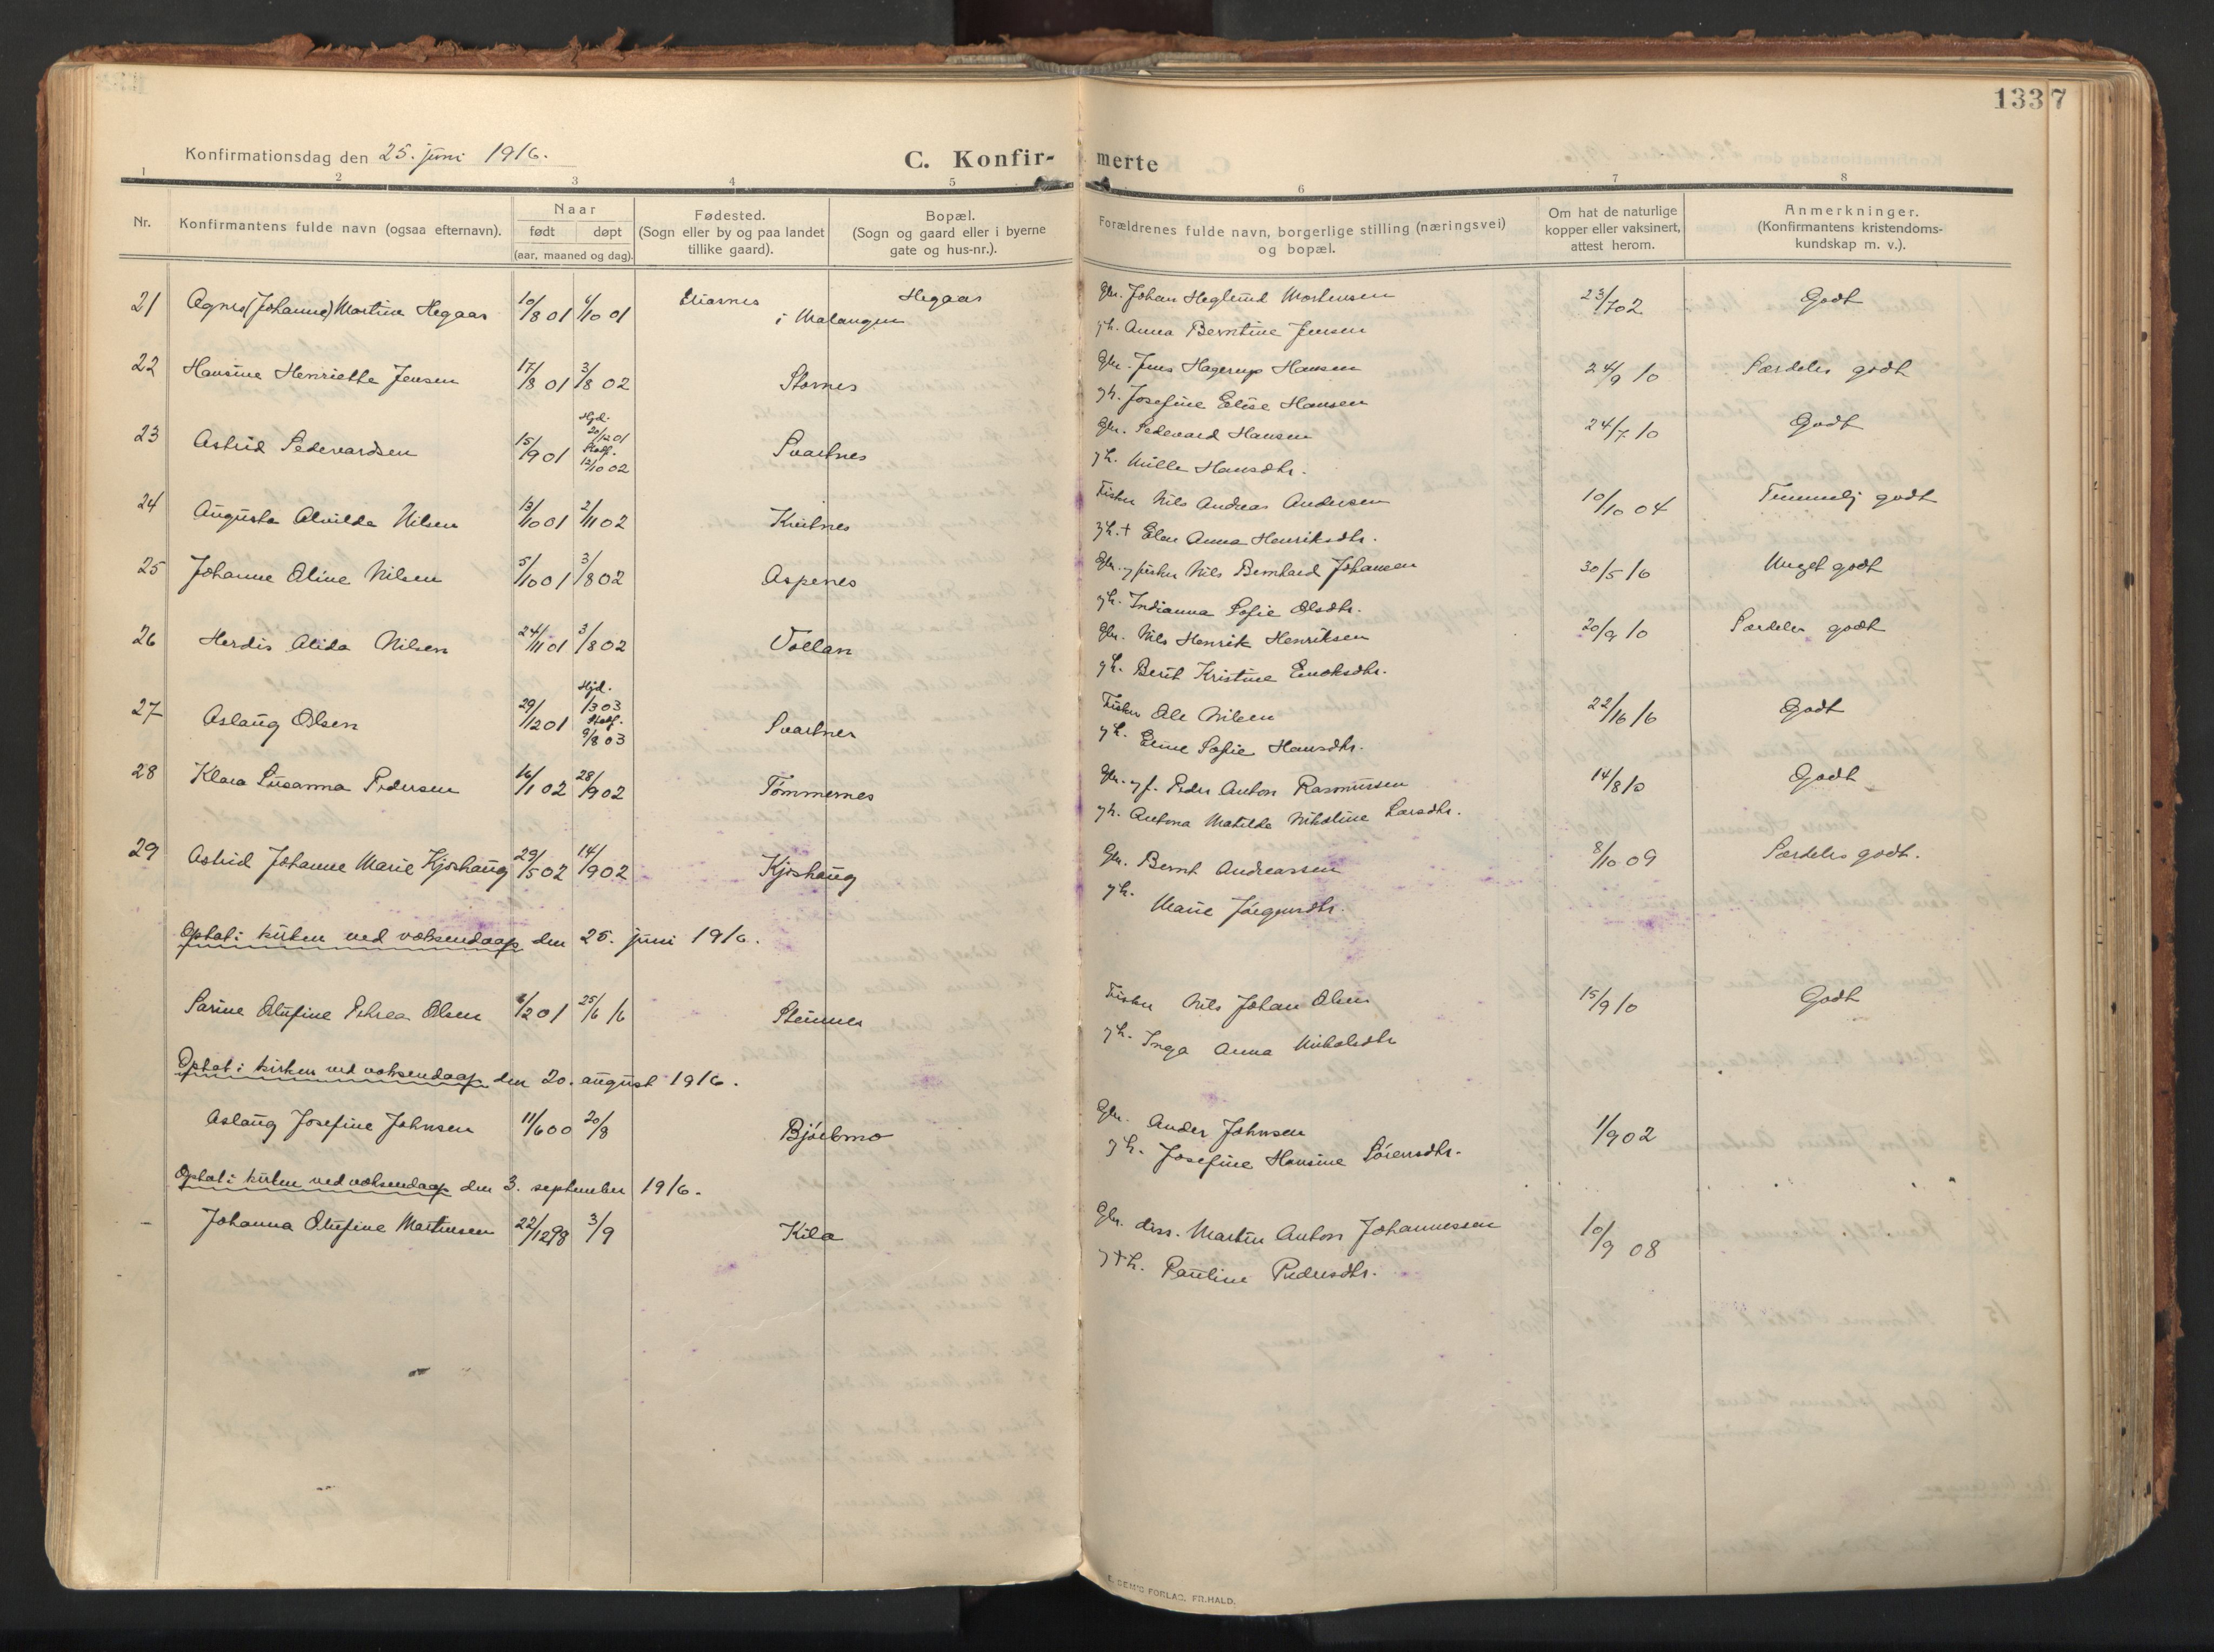 1337
Konfirmationsdag den 25. juni 1916.
C. Konfirmerte
1 2 3 4 5 6 7 8
Nr.
Konfirmantens fulde navn (ogsaa efternavn).
Naar
født døpt
(aar, maaned og dag).
Fødested.
(Sogn eller by og paa landet
tillike gaard).
Bopæl.
(Sogn og gaard eller i byerne
gate og hus-nr.).
Forældrenes fulde navn, borgerlige stilling (næringsvei)
og bopæl.
Om hat de naturlige
kopper eller vaksinert,
attest herom.
Anmerkninger.
(Konfirmantens kristendoms-
kundskap m. v.).
21 Agnes (Johanne) Martine Hegaas 10/8 01 6/10 01 Eliasnes Hegaas Gbr. Johan Heglund Mortensen 23/7 02 Godt
i Malangen
g h. Anna Berntine Jensen
22 Hansine Henriette Jensen 17/8 01 3/8 02 Stornes Gbr. Jens Hagerup Hansen 24/9 10 Særdeles godt
g h. Josefine Elise Hansen
23 Astrid Sedevardsen 15/9 01 Hjd. 20/12 01 Stadf. 12/10 02 Svartnes Gbr. Sedevard Hansen 24/7 10 Godt
g h. Milla Hansdtr.
24 Augusta Alvilda Nilsen 13/10 01 2/11 02 Kvitnes Fisker Nils Andreas Andersen 10/10 04 Temmelig godt
g h. + Elen Anna Henriksdtr.
25 Johanne Oline Nilsen 5/10 01 3/8 02 Aspenes Gbr. g fisker Nils Bernhard Johansen 30/5 16 Meget godt
g h. Indianna Sofie Olsdtr.
26 Herdis Alida Nilsen 24/11 01 3/8 02 Vollan Gbr. Nils Henrik Henriksen 20/9 10 Særdeles godt
g h. Berit Kristine Enoksdtr.
27 Aslaug Olsen 29/12 01 Hjd. 1/3 03 Stadf. 9/8 03 Svartnes Fisker Ole Nilsen 22/16 16 Godt
g h. Eline Sofie Hansdtr.
28 Klara Susanna Pedersen 16/1 02 28/9 02 Tømmernes Gbr. g f. Peder Anton Rasmussen 14/8 10 Godt
g h. Antona Matilde Nikoline Larsdtr.
29 Astrid Johanne Marie Kjoshaug 29/5 02 14/9 02 Kjoshaug Gbr. Bernt Andreassen 8/10 09 Særdeles godt.
g h. Marie Jørgensdtr.
Optat i kirken ved voksendaap den 25. juni 1916.
Sarine Olufine Petrea Olsen 6/2 01 25/6 16 Steinnes Fisker Nils Johan Olsen 15/9 10 Godt
g h. Inga Anna Nikolaidtr
Optat i kirken ved voksendaap den 20. august 1916.
Aslaug Josefine Johnsen 11/6 00 20/8 Bjørkmo Gbr. Ander Johnsen 1/9 02
g h. Josefine Hansine Sørensdtr.
Optat i kirken ved voksendaap den 3. september 1916.
Johanna Olufine Martinsen 22/12 98 3/9 Kila Gbr. diss. Martin Anton Johannessen 10/9 08
g + h. Pauline Pedersdtr.
E. SEM'S FORLAG, FR.HALD.